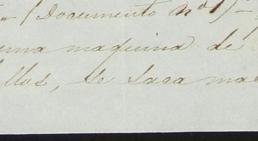 - (Documento nº 1) -
una maquina de
llos, se saca ma